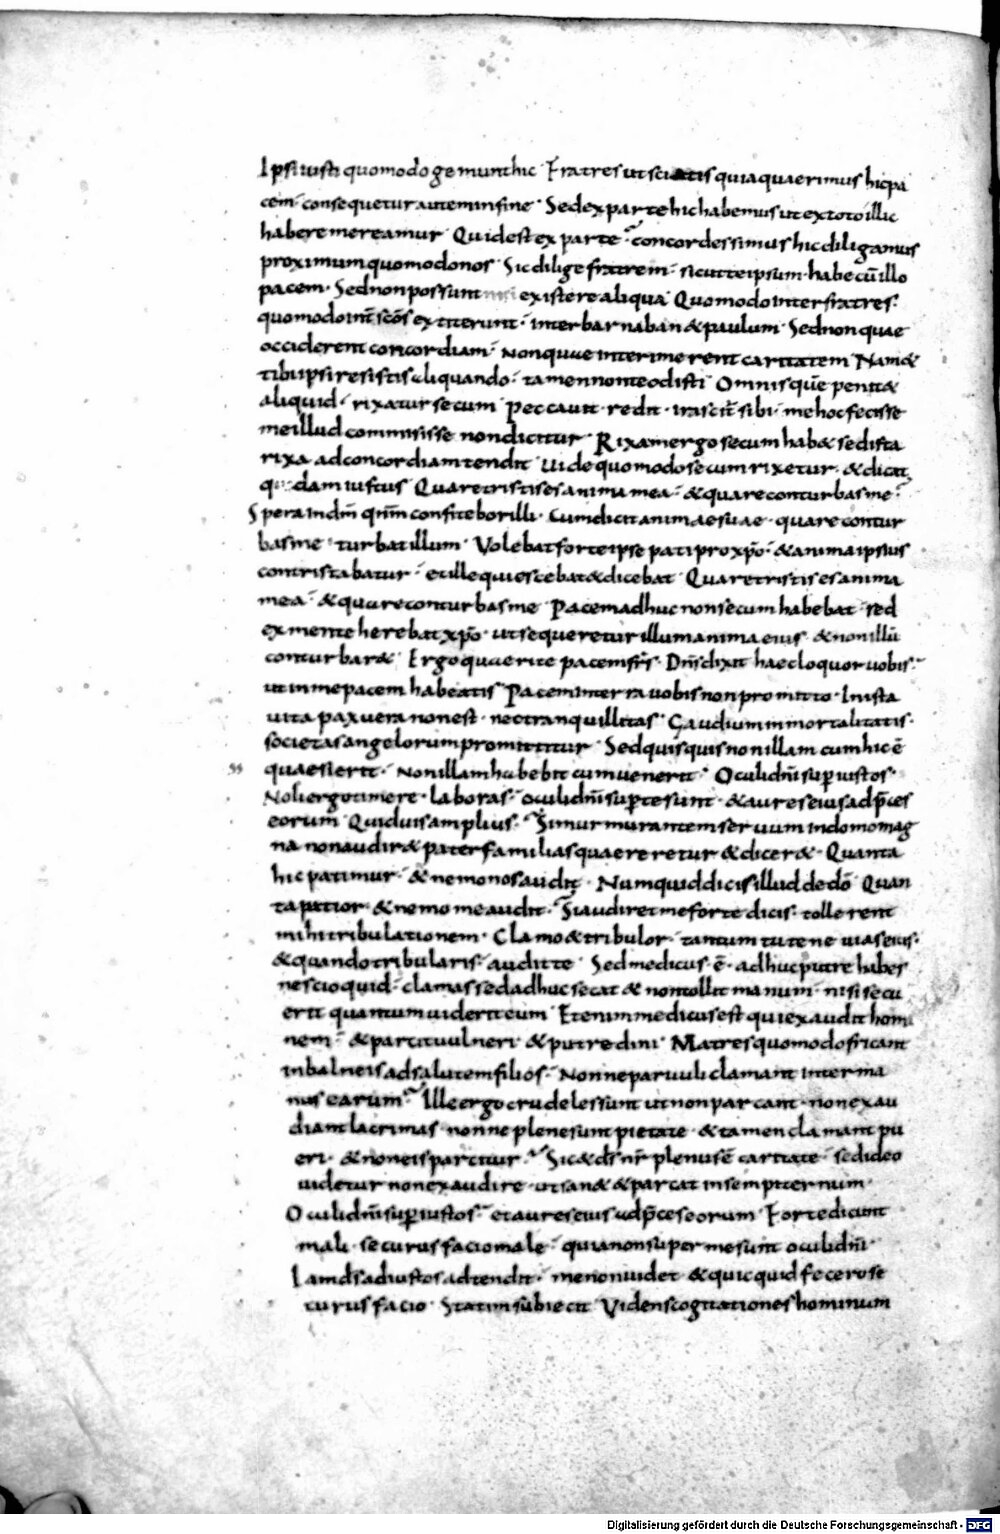 Ipsi iusti quomodo gemunt hic · Fratres ut sciatis quia quaerimus hic pa
cem · consequetur autem in fine · Sed ex parte hic habemus ut ex toto illic
habere mereamur · Quid est ex parte · concordes simus hic diligamus
proximum quomodo nos · Sic dilige fratrem · sicut te ipsum · habe cū illo
pacem · Sed non possunt nisi existere aliqua · Quomodo inter fratres ·
quomodo int̄ sc̄os extiterunt · inter barnaban & paulum · Sed non quae
occiderent concordiam · non quae interimerent caritatem · Nam &
tibi ipsi resistis aliquando · tamen non te odisti · Omnis quē penit&
aliquid · rixatur secum · Peccauit · redit · irascit̄ sibi · me hoc fecisse
me illud commisisse non dicitur · Rixam ergo secum hab& sed ista
rixa ad concordiam tendit · Uide quomodo secum rixetur · & dicat
quidam iustus · Quare tristis es anima mea · & quare conturbas me ·
Spera in dm̄ qnm̄ confitebor illi · Cum dicit animae suae · quare contur
bas me · turbat illum · Volebat forte ipse pati pro xp̄o · & anima ipsius
contristabatur · et ille quiescebat & dicebat · Quare tristis es anima
mea · & quare conturbas me · Pacem adhuc non secum habebat · sed
ex mente herebat xp̄o · ut sequeretur illum anima eius · & non illū
conturbar& · Ergo quaerite pacem fr̄s · Dn̄s dixit haec loquor uobis ·
ut in me pacem habeatis · Pacem in terra uobis non promitto · In ista
uita pax uera non est · nec tranquillitas · Gaudium inmortalitatis ·
societas angelorum promittitur · Sed quisquis non illam cum hic ē
quaesierit · non illam habebit cum uenerit · Oculi dn̄i sup̄ iustos ·
Noli ergo timere · laboras · oculi dn̄i sup̄ te sunt · & aures eius ad p̄ces
eorum · Quid uis amplius · Si murmurantem seruum in domo mag
na non audir& paterfamilias quaereretur & dicer& · Quanta
hic patimur · & nemo nos audit · Numquid dicis illud de dō · Quan
ta patior & nemo me audit · Si audiret me forte dicis · tolleret
mihi tribulationem · Clamo & tribulor · tantum tu tene uias eius ·
& quando tribularis · audit te · Sed medicus · ē · adhuc putre habes
nescio quid · clamas sed adhuc secat & non tollit manum · nisi secu
erit quantum uiderit eum · Etenim medicus est qui exaudit homi
nem · & parcit uulneri · & putredini · Matres quomodo fricant
in balneis ad salutem filios · Nonne paruuli clamant inter ma
nus earum · Ille ergo crudeles sunt ut non parcant · non exau
diant lacrimas · nonne plene sunt pietate · & tamen clamant pu
eri · & non eis parcitur · Sic & ds̄ nr̄ plenus ē caritate · sed ideo
uidetur non exaudire · ut san& & parcat in sempiternum ·
Oculi dn̄i sup̄ iustos · et aures eius ad p̄ces eorum · Forte dicunt
mali · securus facio male · quia non super me sunt oculi dn̄i ·
Iam ds̄ ad iustos adtendit · me non uidet · & quicquid fecero se
curus facio · Statim subiecit · Videns cogitationes hominum
Digitalisierung gefördert durch die Deutsche Forschungsgemeinschaft - DFG